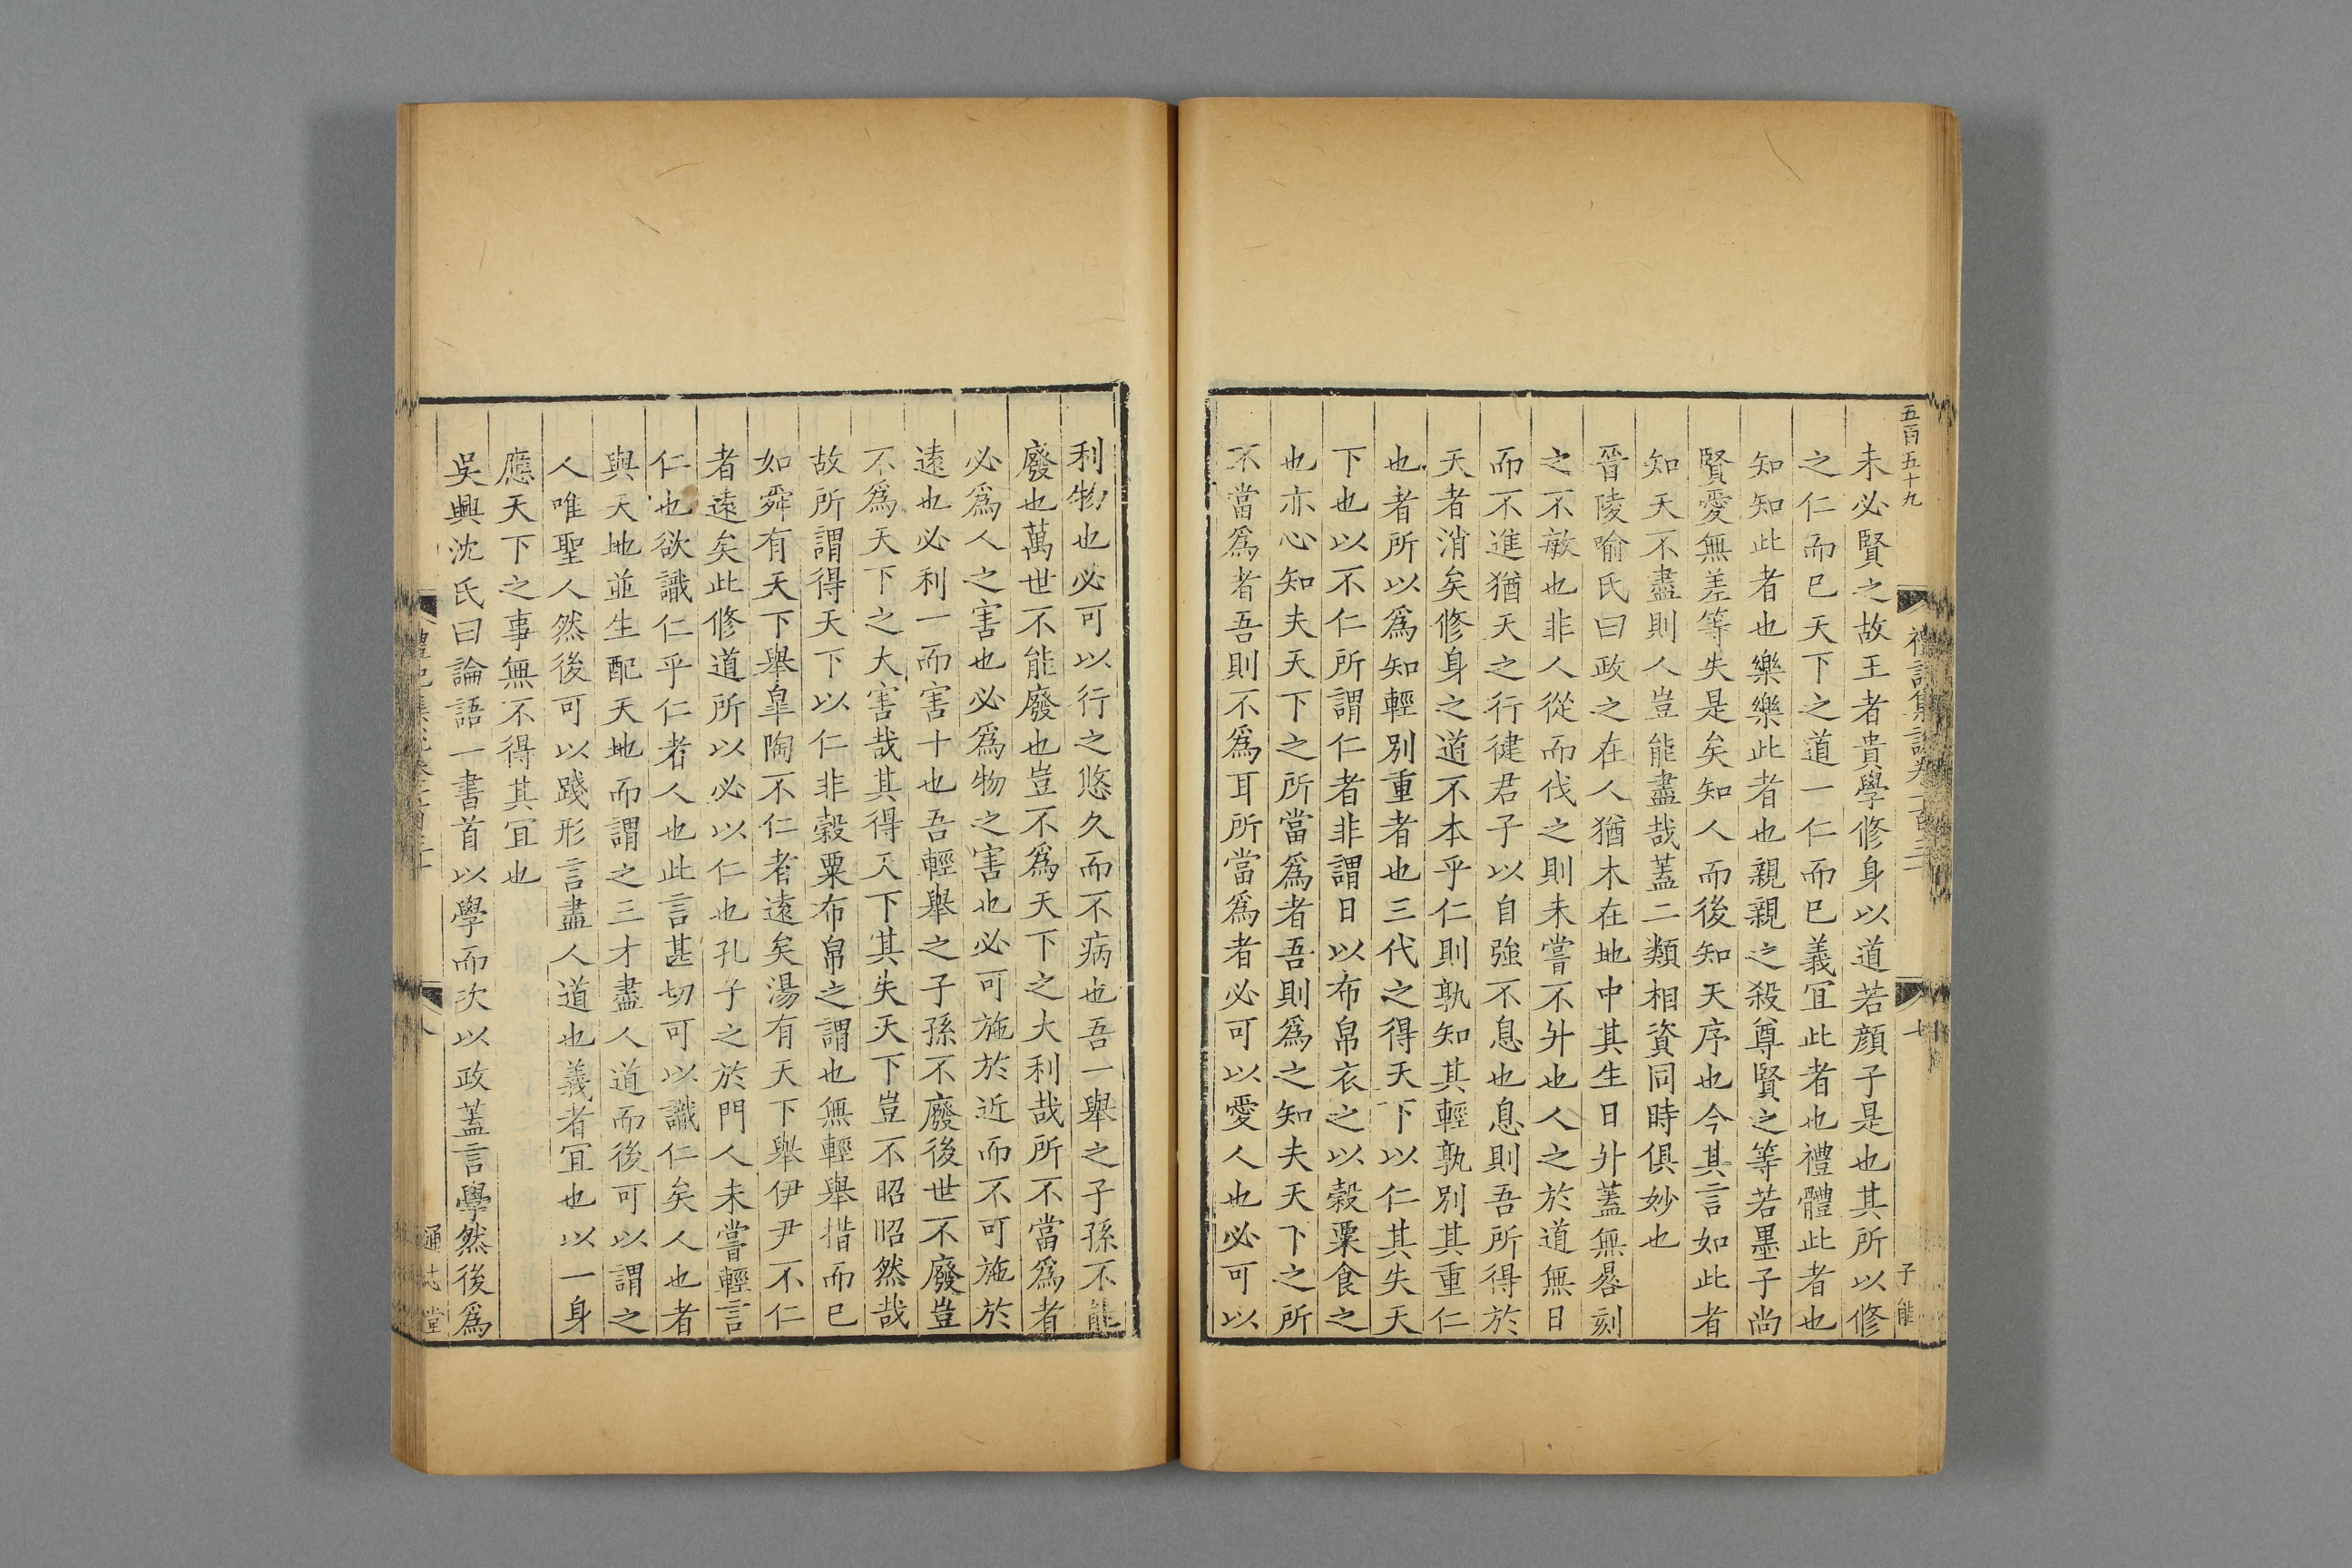 五百五十九
未必賢之故王者貴學修身以道若顔子是也其所以修
之仁而已天下之道一仁而已義冝此者也禮體此者也
知知此者也樂樂此者也親親之殺尊賢之等若墨子尚
賢愛無差等失是矣知人而後知天序也今其言如此者
知天不盡則人豈能盡哉蓋二類相資同時俱妙也
晉陵喻氏曰政之在人猶木在地中其生日升蓋無晷刻
之不敏也非人從而伐之則未嘗不升也人之於道無日
而不進猶天之行健君子以自強不息也息則吾所得於
天者消矣修身之道不本乎仁則孰知其輕孰別其重仁
也者所以爲知輕別重者也三代之得天下以仁其失天
下也以不仁所謂仁者非謂日以布帛衣之以榖粟食之
也亦心知夫天下之所當爲者吾則爲之知夫天下之所
不當爲者吾則不爲耳所當爲者必可以愛人也必可以
子能
利物也必可以行之悠久而不病也吾一舉之子孫不能
廢也萬世不能廢也豈不爲天下之大利哉所不當爲者
必爲人之害也必爲物之害也必可施於近而不可施於
遠也必利一而害十也吾輕舉之子孫不廢後世不廢豈
不爲天下之大害哉其得天下其失天下豈不昭昭然哉
故所謂得天下以仁非榖粟布帛之謂也無輕舉措而已
如舜有天下舉皐陶不仁者遠矣湯有天下舉伊尹不仁
者遠矣此修道所以必以仁也孔子之於門人未嘗輕言
仁也欲識仁乎仁者人也此言甚切可以識仁矣人也者
與天地並生配天地而謂之三才盡人道而後可以謂之
人唯聖人然後可以踐形言盡人道也義者冝也以一身
應天下之事無不得其冝也
吳興沈氏曰論語一書首以學而次以政蓋言學然後爲
八
通志堂